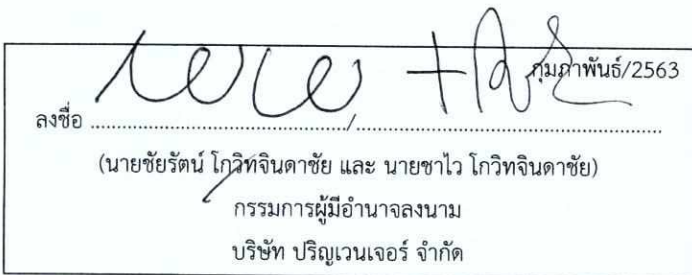 กุมภาพันธ์/2563
ลงชื่อ ................................................/......................................................
(นายชัยรัตน์ โกวิทจินดาชัย และ นายชาไว โกวิทจินดาชัย)
กรรมการผู้มีอำนาจลงนาม
บริษัท ปริญเวนเจอร์ จำกัด